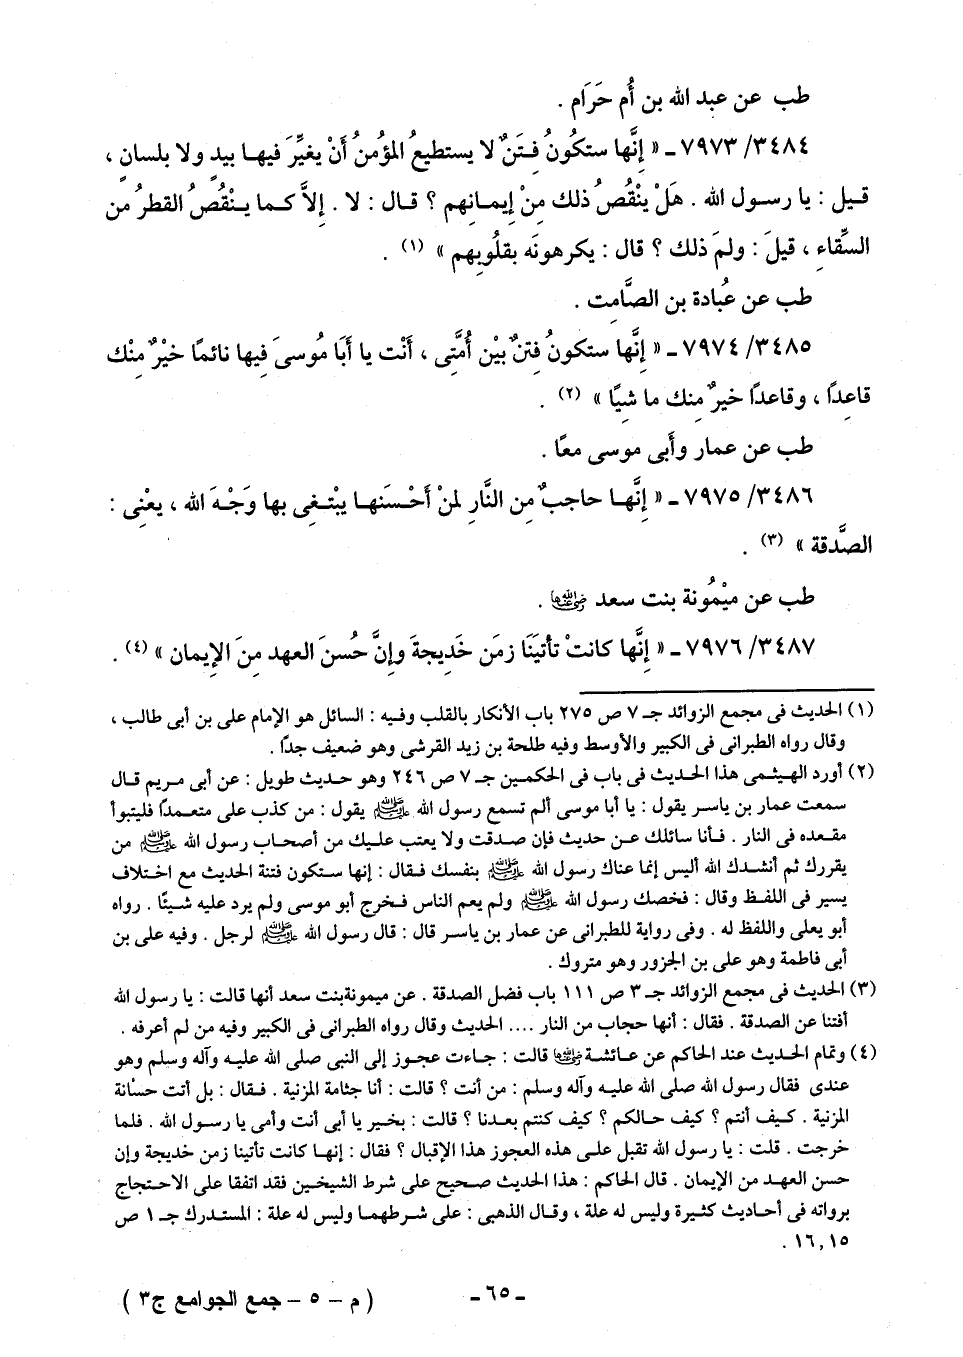 طب عن عبد الله بن أُم حَرَام .
٣٤٨٤/ ٧٩٧٣ ـ « إِنَّها ستكُونُ فِتَنٌ لا يستطيعُ المؤمنُ أَنْ يغيِّرَ فيها بيدٍ ولا بلسانٍ ،
قيل : يا رسول الله . هَلْ ينْقُصُ ذلك مِنْ إِيمانهم ؟ قال : لا . إِلاَّ كما ينْقُصُ القطرُ من
السِّقاءِ ، قيلَ : ولمَ ذلك ؟ قال : يكرهونَه بقلُوبِهم » (١) .
طب عن عُبادة بن الصَّامِت .
٣٤٨٥/ ٧٩٧٤ ـ « إِنَّها ستكونُ فتنٌ بيْن أُمَّتِى ، أَنْت يا أَبَا مُوسىَ فِيها نائمًا خيْرٌ مِنْك
قاعِدًا ، وقاعدًا خيرٌ منك ما شيًا » (٢) .
طب عن عمار وأبى موسى معًا .
٣٤٨٦/ ٧٩٧٥ ـ « إِنَّها حاجبٌ مِن النَّارِ لمنْ أَحْسَنها يبْتغِى بها وَجْهَ الله ، يعْنِى :
الصَّدقة » (٣) .
طب عن ميْمُونة بنت سعد رضى الله عنها .
٣٤٨٧/ ٧٩٧٦ ـ « إِنَّها كانتْ تأتِينَا زمَن خَدِيجةَ وإِنَّ حُسنَ العهد مِنَ الإِيمان » (٤) .
(١) الحديث فى مجمع الزوائد جـ ٧ ص ٢٧٥ باب الأنكار بالقلب وفيه : السائل هو الإمام على بن أبى طالب ،
وقال رواه الطبرانى فى الكبير والأوسط وفيه طلحة بن زيد القرشى وهو ضعيف جدًا .
(٢) أورد الهيثمى هذا الحديث فى باب فى الحكمين جـ ٧ ص ٢٤٦ وهو حديث طويل : عن أبى مريم قال
سمعت عمار بن ياسر يقول : يا أبا موسى ألم تسمع رسول الله ﷺ يقول : من كذب على متعمدًا فليتبوأ
مقعده فى النار . فأنا سائلك عن حديث فإن صدقت ولا يعتب عليك من أصحاب رسول الله ﷺ من
يقررك ثم أنشدك الله أليس إنما عناك رسول الله ﷺ بنفسك فقال : إنها ستكون فتنة الحديث مع اختلاف
يسير فى اللفظ وقال : فخصك رسول الله ﷺ ولم يعم الناس فخرج أبو موسى ولم يرد عليه شيئًا . رواه
أبو يعلى واللفظ له . وفى رواية للطبرانى عن عمار بن ياسر قال : قال رسول الله ﷺ لرجل . وفيه على بن
أبى فاطمة وهو على بن الجزور وهو متروك .
(٣) الحديث فى مجمع الزوائد جـ ٣ ص ١١١ باب فضل الصدقة . عن ميمونةبنت سعد أنها قالت : يا رسول الله
أفتنا عن الصدقة . فقال : أنها حجاب من النار .... الحديث وقال رواه الطبرانى فى الكبير وفيه من لم أعرفه .
(٤) وتمام الحديث عند الحاكم عن عائشة رضى الله عنها قالت : جاءت عجوز إلى النبى صلى الله عليه وآله وسلم وهو
عندى فقال رسول الله صلى الله عليه وآله وسلم : من أنت ؟ قالت : أنا جثامة المزنية . فقال : بل أتت حسانة
المزنية . كيف أنتم ؟ كيف حالكم ؟ كيف كنتم بعدنا ؟ قالت : بخير يا أبى أنت وأمى يا رسول الله . فلما
خرجت . قلت : يا رسول الله تقبل على هذه العجوز هذا الإقبال ؟ فقال : إنها كانت تأتينا زمن خديجة وإن
حسن العهد من الإيمان . قال الحاكم : هذا الحديث صحيح على شرط الشيخين فقد اتفقا على الاحتجاج
برواته فى أحاديث كثيرة وليس له علة ، وقال الذهبى : على شرطهما وليس له علة : المستدرك جـ ١ ص
١٦,١٥ .
ـ ٦٥ ـ
( م - ٥ - جمع الجوامع ج٣ )